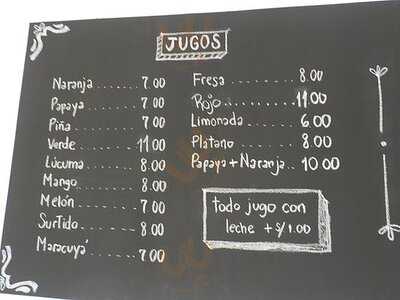 JUGOS
Naranja ....... 7.00
Papaya ........ 7.00
Piña ......... 7.00
Verde ........ 11.00
Lúcuma ....... 8.00
Mango ........ 8.00
Melón ........ 7.00
Surtido ....... 8.00
Maracuyá ...... 7.00
Fresa ......... 8.00
Rojo ......... 11.00
Limonada ...... 6.00
Platano ....... 8.00
Papaya + Naranja .. 10.00
todo jugo con
leche + S/1.00